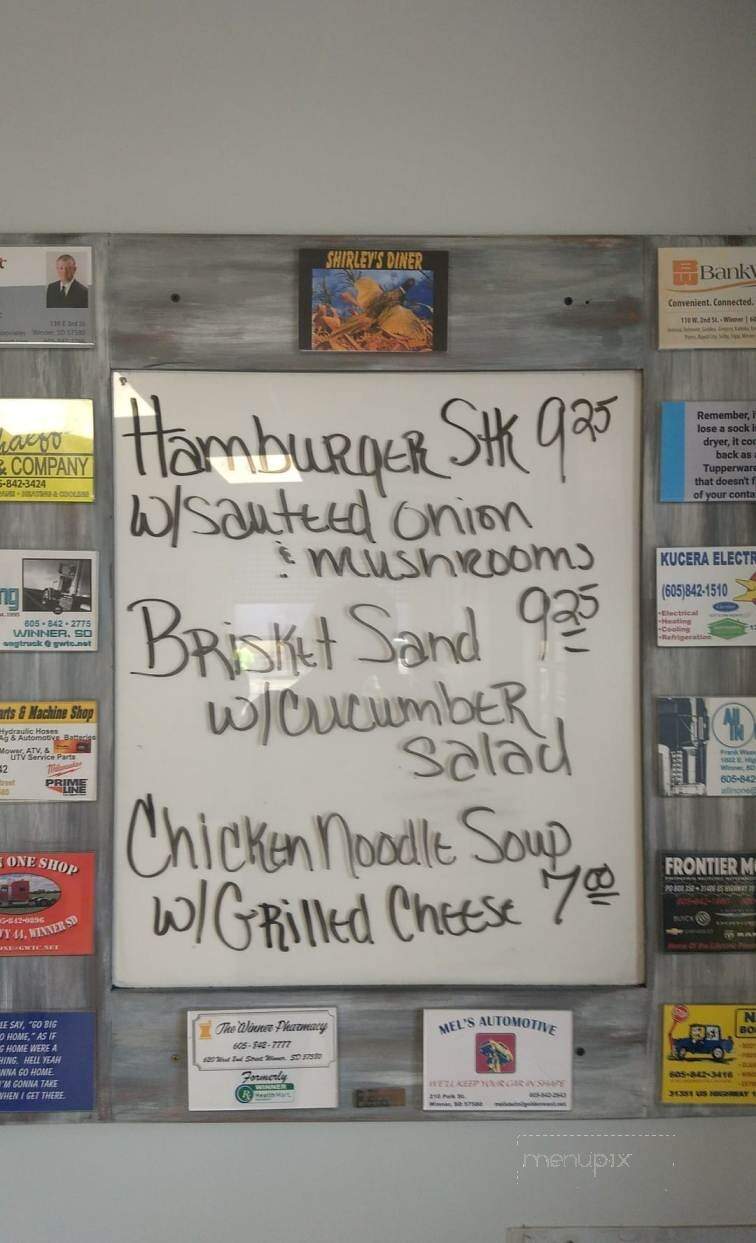 SHIRLEY'S DINER
HAMBURGER Stk 9 25
w/sauteed onion
& mushrooms
BRisket Sand 9 25
w/cucumber
salad
Chicken Noodle Soup
w/Grilled Cheese 7 00
130 E 3rd St
Winner, SD 57580
& COMPANY
5-842-3424
605 • 842 • 2775
WINNER, SD
ongtruck @ gwtc.net
arts & Machine Shop
Hydraulic Hoses
Ag & Automotive Batteries
Mower, ATV, &
UTV Service Parts
Milwaukee
PRIME
LINE
N ONE SHOP
5-842-0896
Y 44, WINNER SD
ONE@GWTC.NET
LE SAY, "GO BIG
O HOME," AS IF
G HOME WERE A
HING. HELL YEAH
NNA GO HOME.
'M GONNA TAKE
WHEN I GET THERE.
The Winner Pharmacy
605-842-7777
Formerly
WINNER
HealthMart
MEL'S AUTOMOTIVE
WE'LL KEEP YOUR CAR IN SHAPE
210 Polk St.
Winner, SD 57580
605-842-2943
BankW
Convenient. Connected.
110 W. 2nd St. • Winner | 60
Remember, i
lose a sock i
dryer, it co
back as
Tupperware
that doesn't f
of your conta
KUCERA ELECTR
(605)842-1510
•Electrical
•Heating
•Cooling
•Refrigeration
All
IN
Winner, SD
605-842
allinone@
FRONTIER M
BUICK
605-842-3416
31351 US HIGHWAY 1
menupix